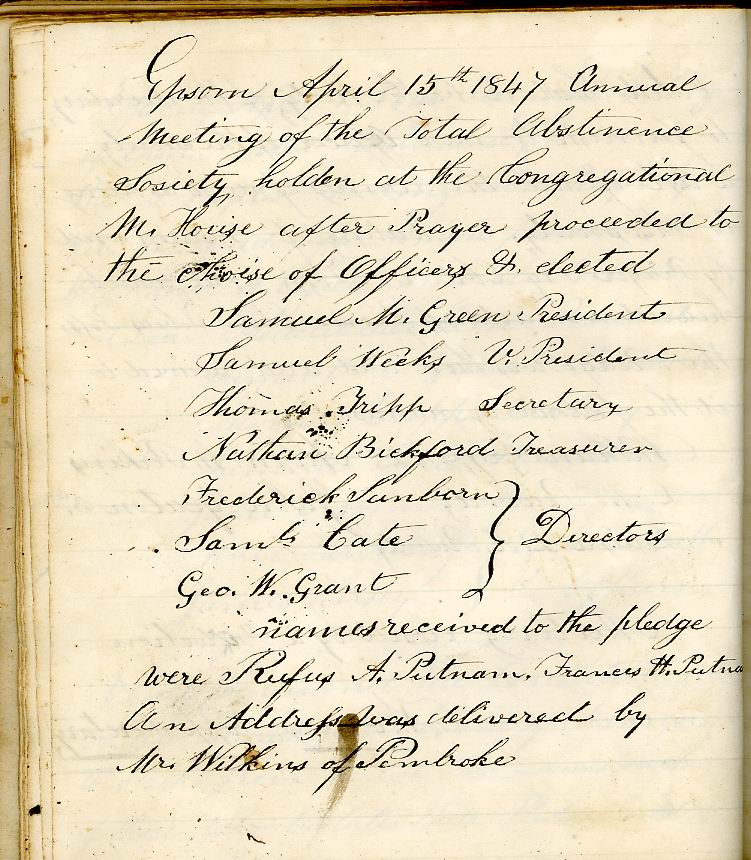 Epsom April 15th 1847 Annual
Meeting of the Total Abstinence
Sosiety holden at the Congregational
M. House after Prayer proceeded to
the Choise of Officers & elected
Samuel M. Green President
Samuel Weeks V. President
Thomas Tripp Secretary
Nathan Bickford Treasurer
Frederick Sanborn
Saml. Cate } Directors
Geo. W. Grant
names received to the pledge
were Rufus A. Putnam, Frances H. Putna
An Address was delivered by
Mr. Wilkins of Pembroke